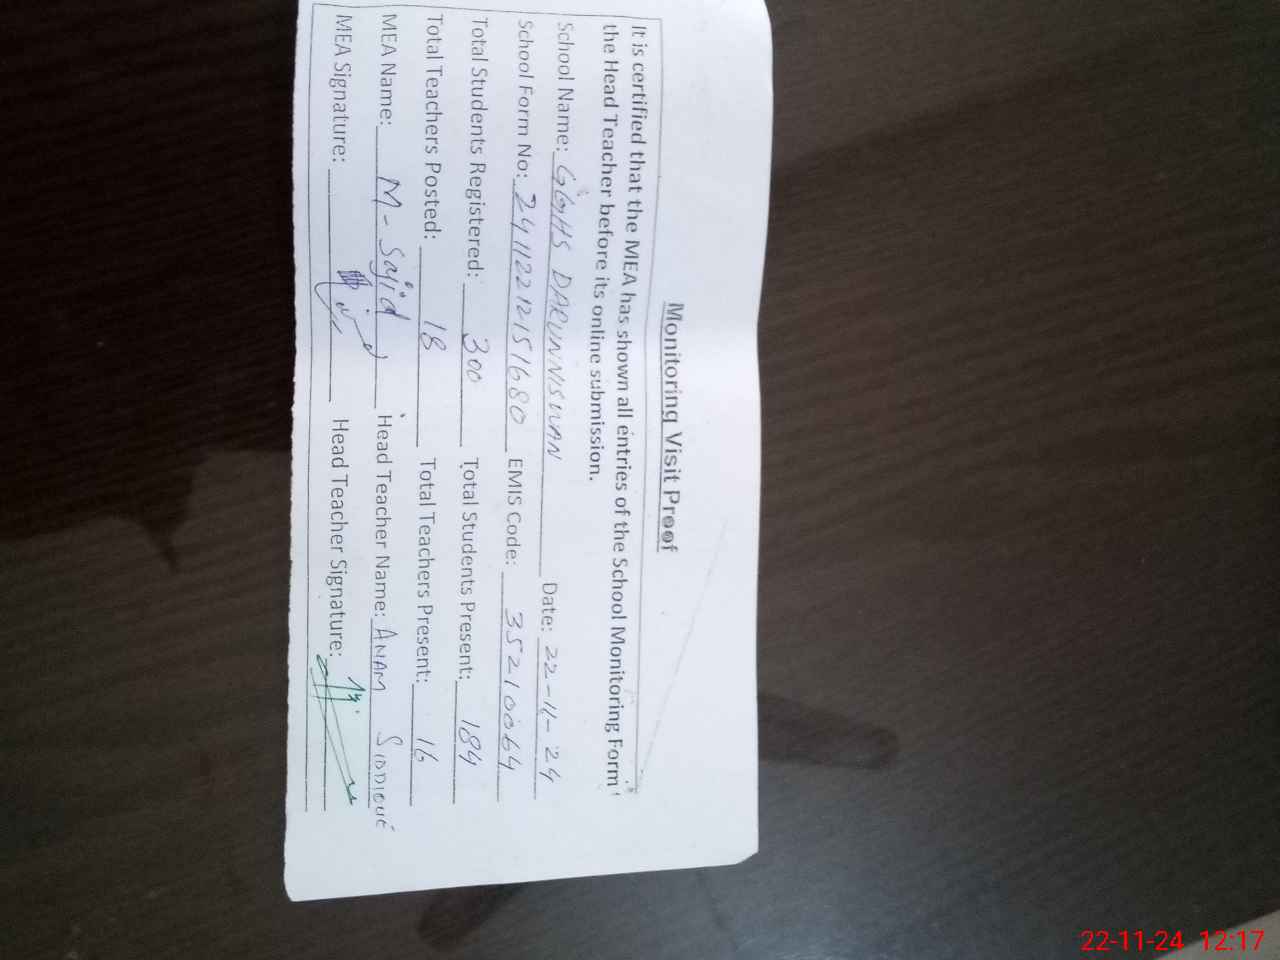 Monitoring Visit Proof
It is certified that the MEA has shown all entries of the School Monitoring Form
the Head Teacher before its online submission.
School Name: GGHS DARUNNISWAN Date: 22-11-24
School Form No: 24112212151680 EMIS Code: 35210064
Total Students Registered: 300 Total Students Present: 184
Total Teachers Posted: 18 Total Teachers Present: 16
MEA Name: M-Sajid Head Teacher Name: ANAM SIDDIQUE
MEA Signature: Head Teacher Signature:
22-11-24 12:17